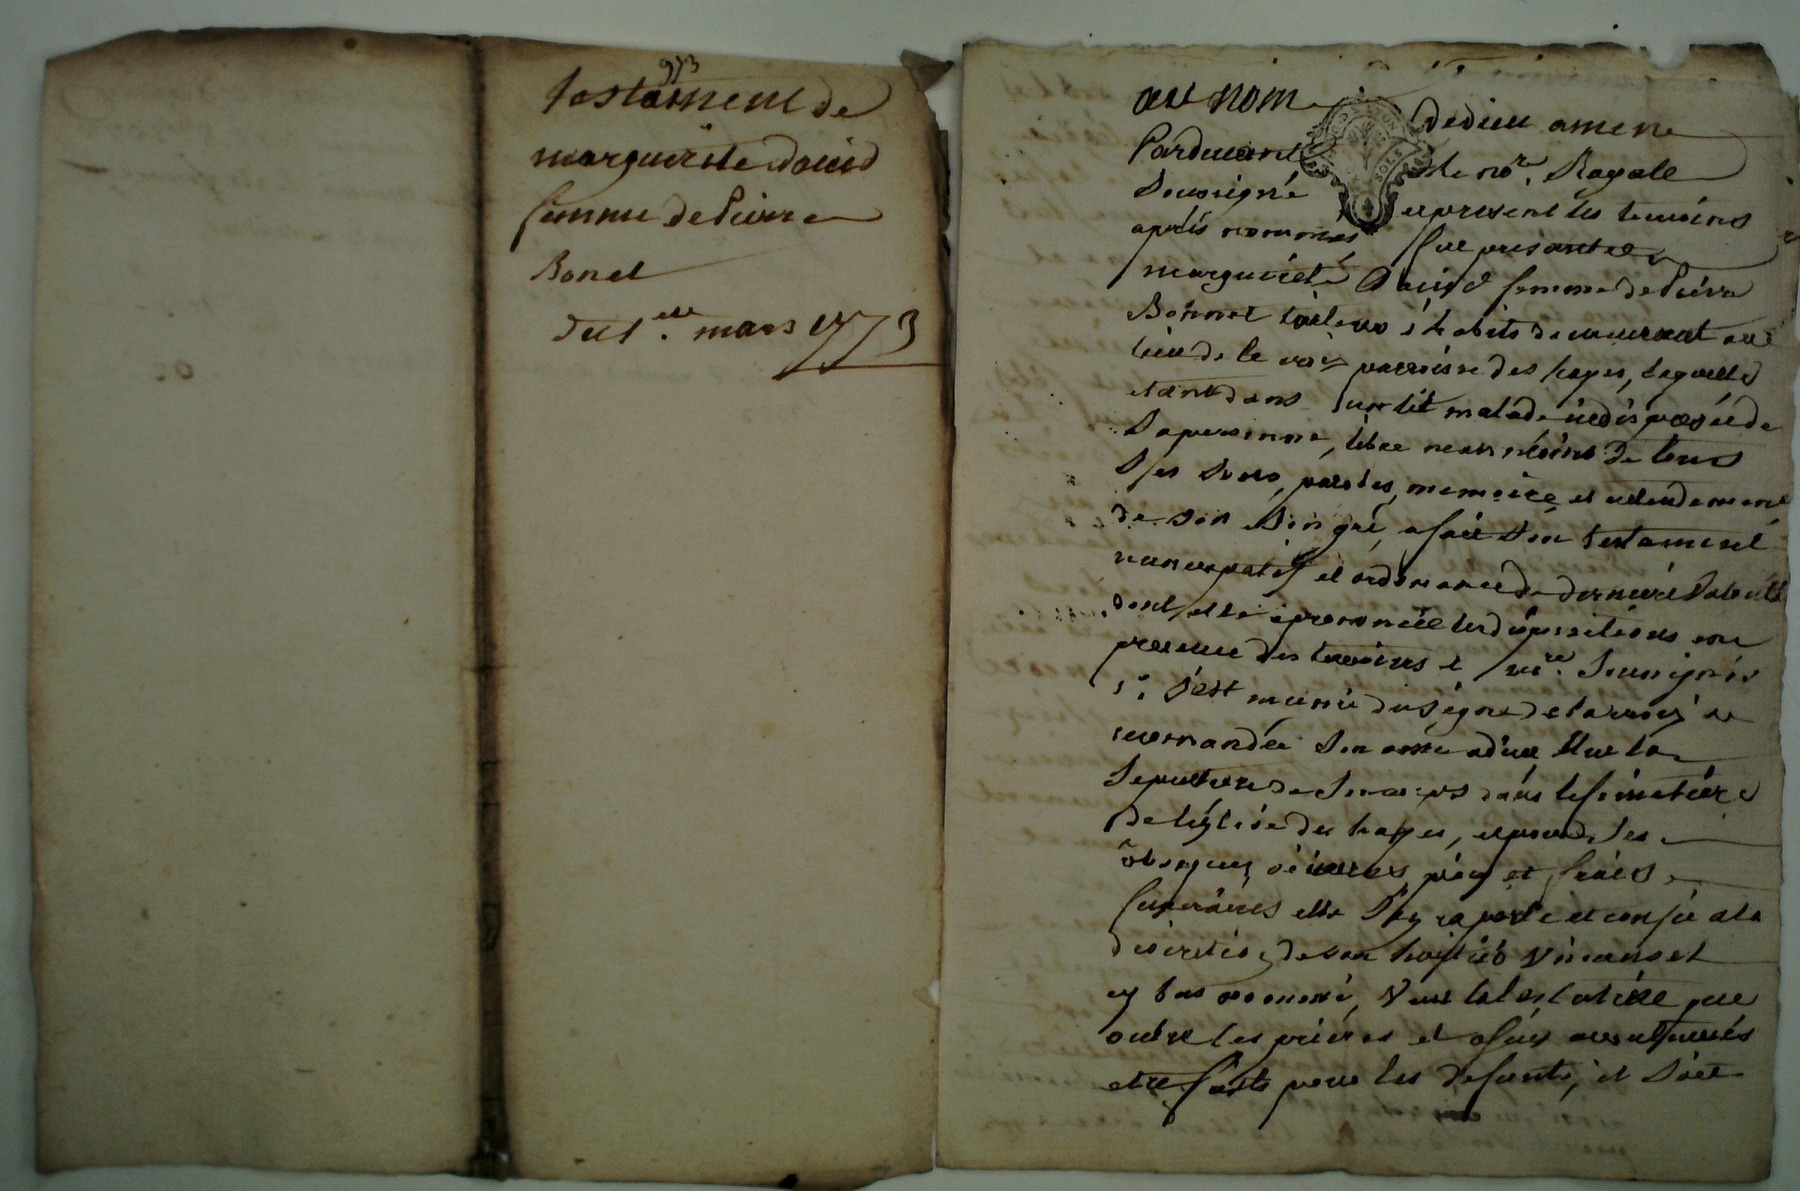 973
testament de
marguerite david
femme de Pierre
Bonet
du 1er. mars 1773
au nom de dieu amene
Pardevant le nore. Royale
Sousigné et present les temoins
aprés nommés fut presantee
marguerite David femme de Piérre
Bonnet tailleur d'habits demeurant au
lieu de la parroisse des hayes, laquelle
etant dans un lit malade indisposée de
sa personne, libre neanmoins de tous
ses sens, parolles, memoire et entendement
de son bon gré, a fait son testament
nuncupatif et ordonance de derniere volonté
dont elle a prononcée les dispositions en
presence des temoins et nore. Sousignés
1°. s'est munie du signe de la croix a
recomandée son ame a dieu élue la
sepulture de son corps dans le simetiére
de léglise des hayes, et pour ses
obseques, oeuvres pies et fraies
funeraires elle s'en raporte et confie a la
discrétion de son heritier
cy bas nommé, Veut la testatrice que
outre les priéres et acoutumés
etre faits pour les defunts, il soit